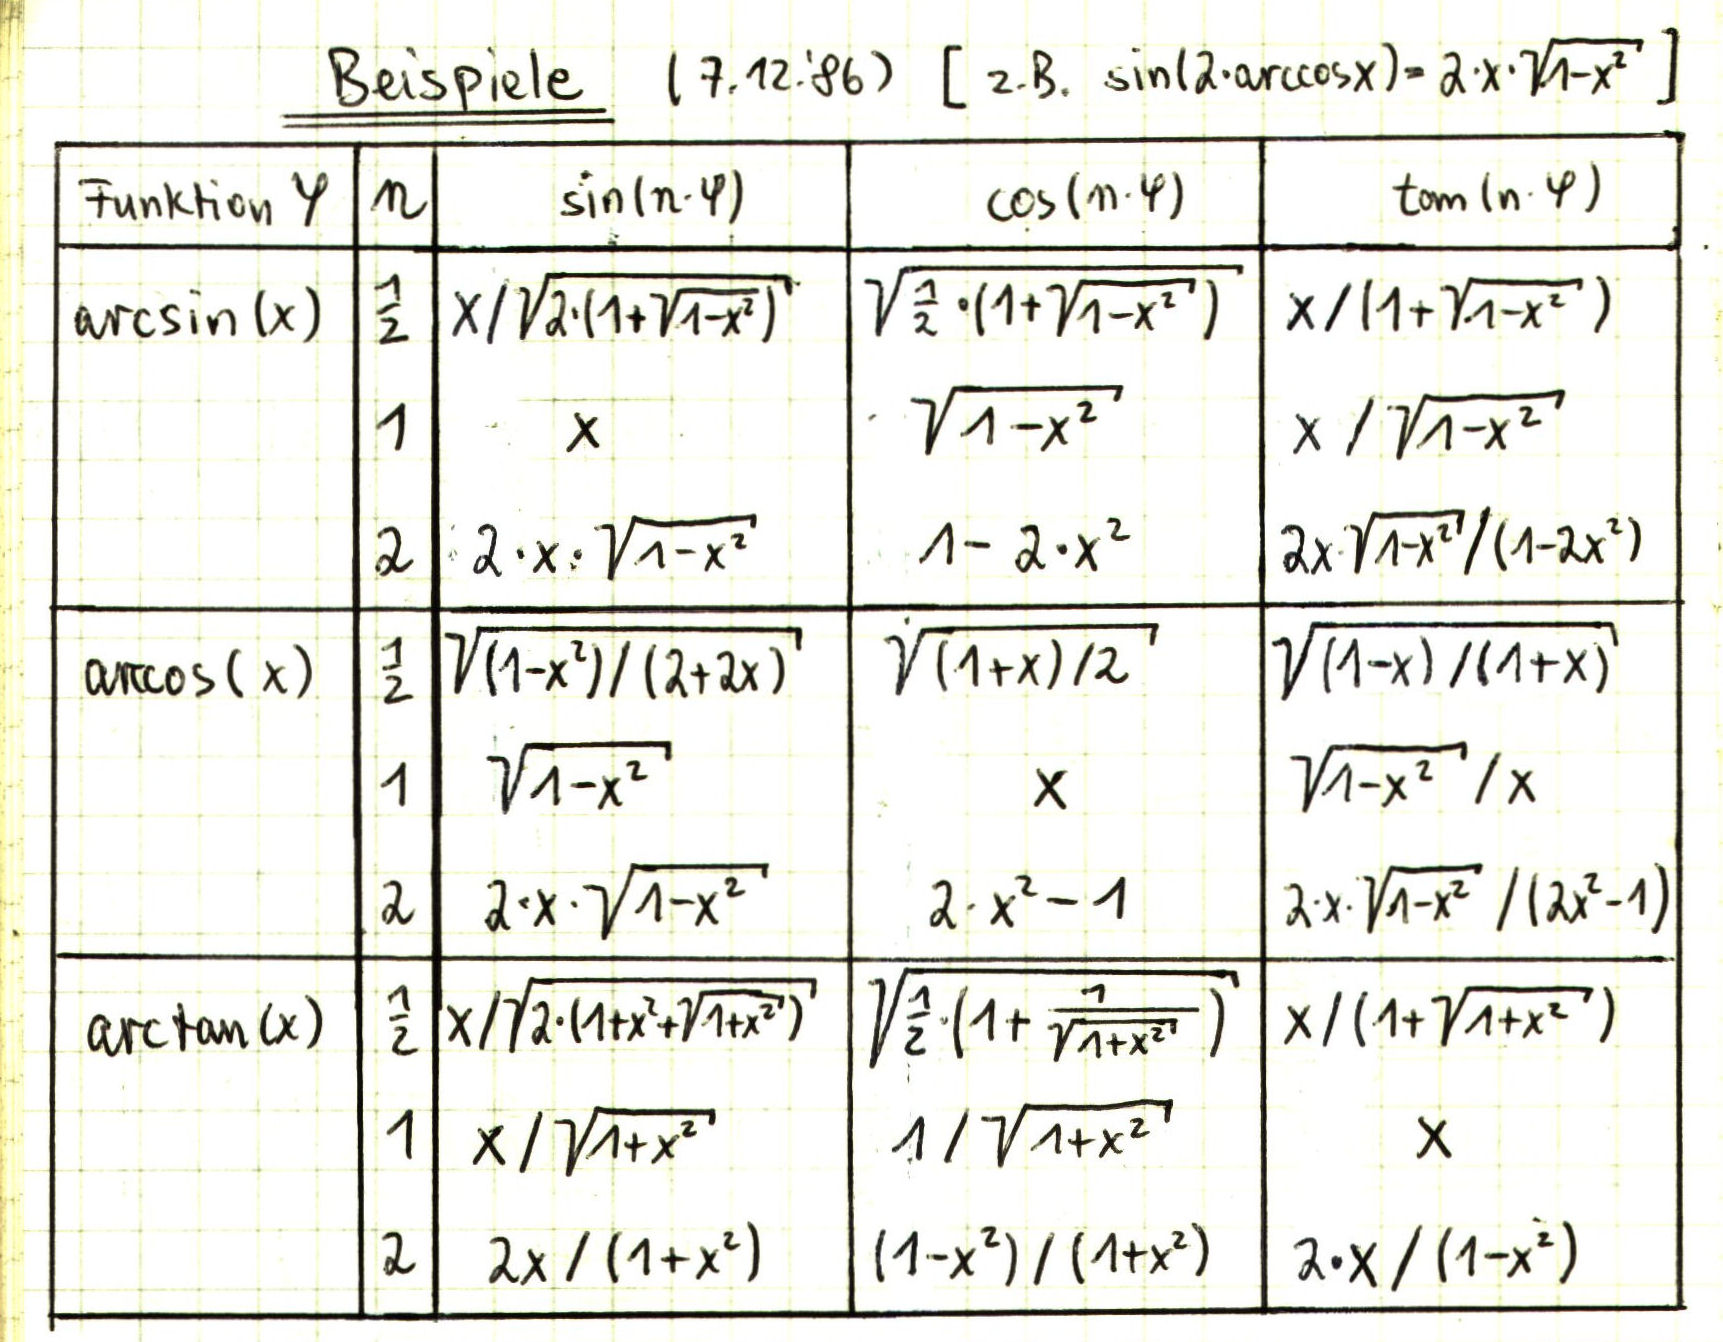 Beispiele (7.12.'86) [ z.B. sin(2·arccosx) = 2·x·√(1-x²) ]
Funktion φ n sin(n·φ) cos(n·φ) tan(n·φ)
arcsin(x) 1/2 x/√(2·(1+√(1-x²))) √(1/2·(1+√(1-x²))) x/(1+√(1-x²))
1 x √(1-x²) x/√(1-x²)
2 2·x·√(1-x²) 1-2·x² 2x·√(1-x²)/(1-2x²)
arccos(x) 1/2 √((1-x²)/(2+2x)) √((1+x)/2) √((1-x)/(1+x))
1 √(1-x²) x √(1-x²)/x
2 2·x·√(1-x²) 2·x²-1 2·x·√(1-x²)/(2x²-1)
arctan(x) 1/2 x/√(2·(1+x²+√(1+x²))) √(1/2·(1+1/√(1+x²))) x/(1+√(1+x²))
1 x/√(1+x²) 1/√(1+x²) x
2 2x/(1+x²) (1-x²)/(1+x²) 2·x/(1-x²)